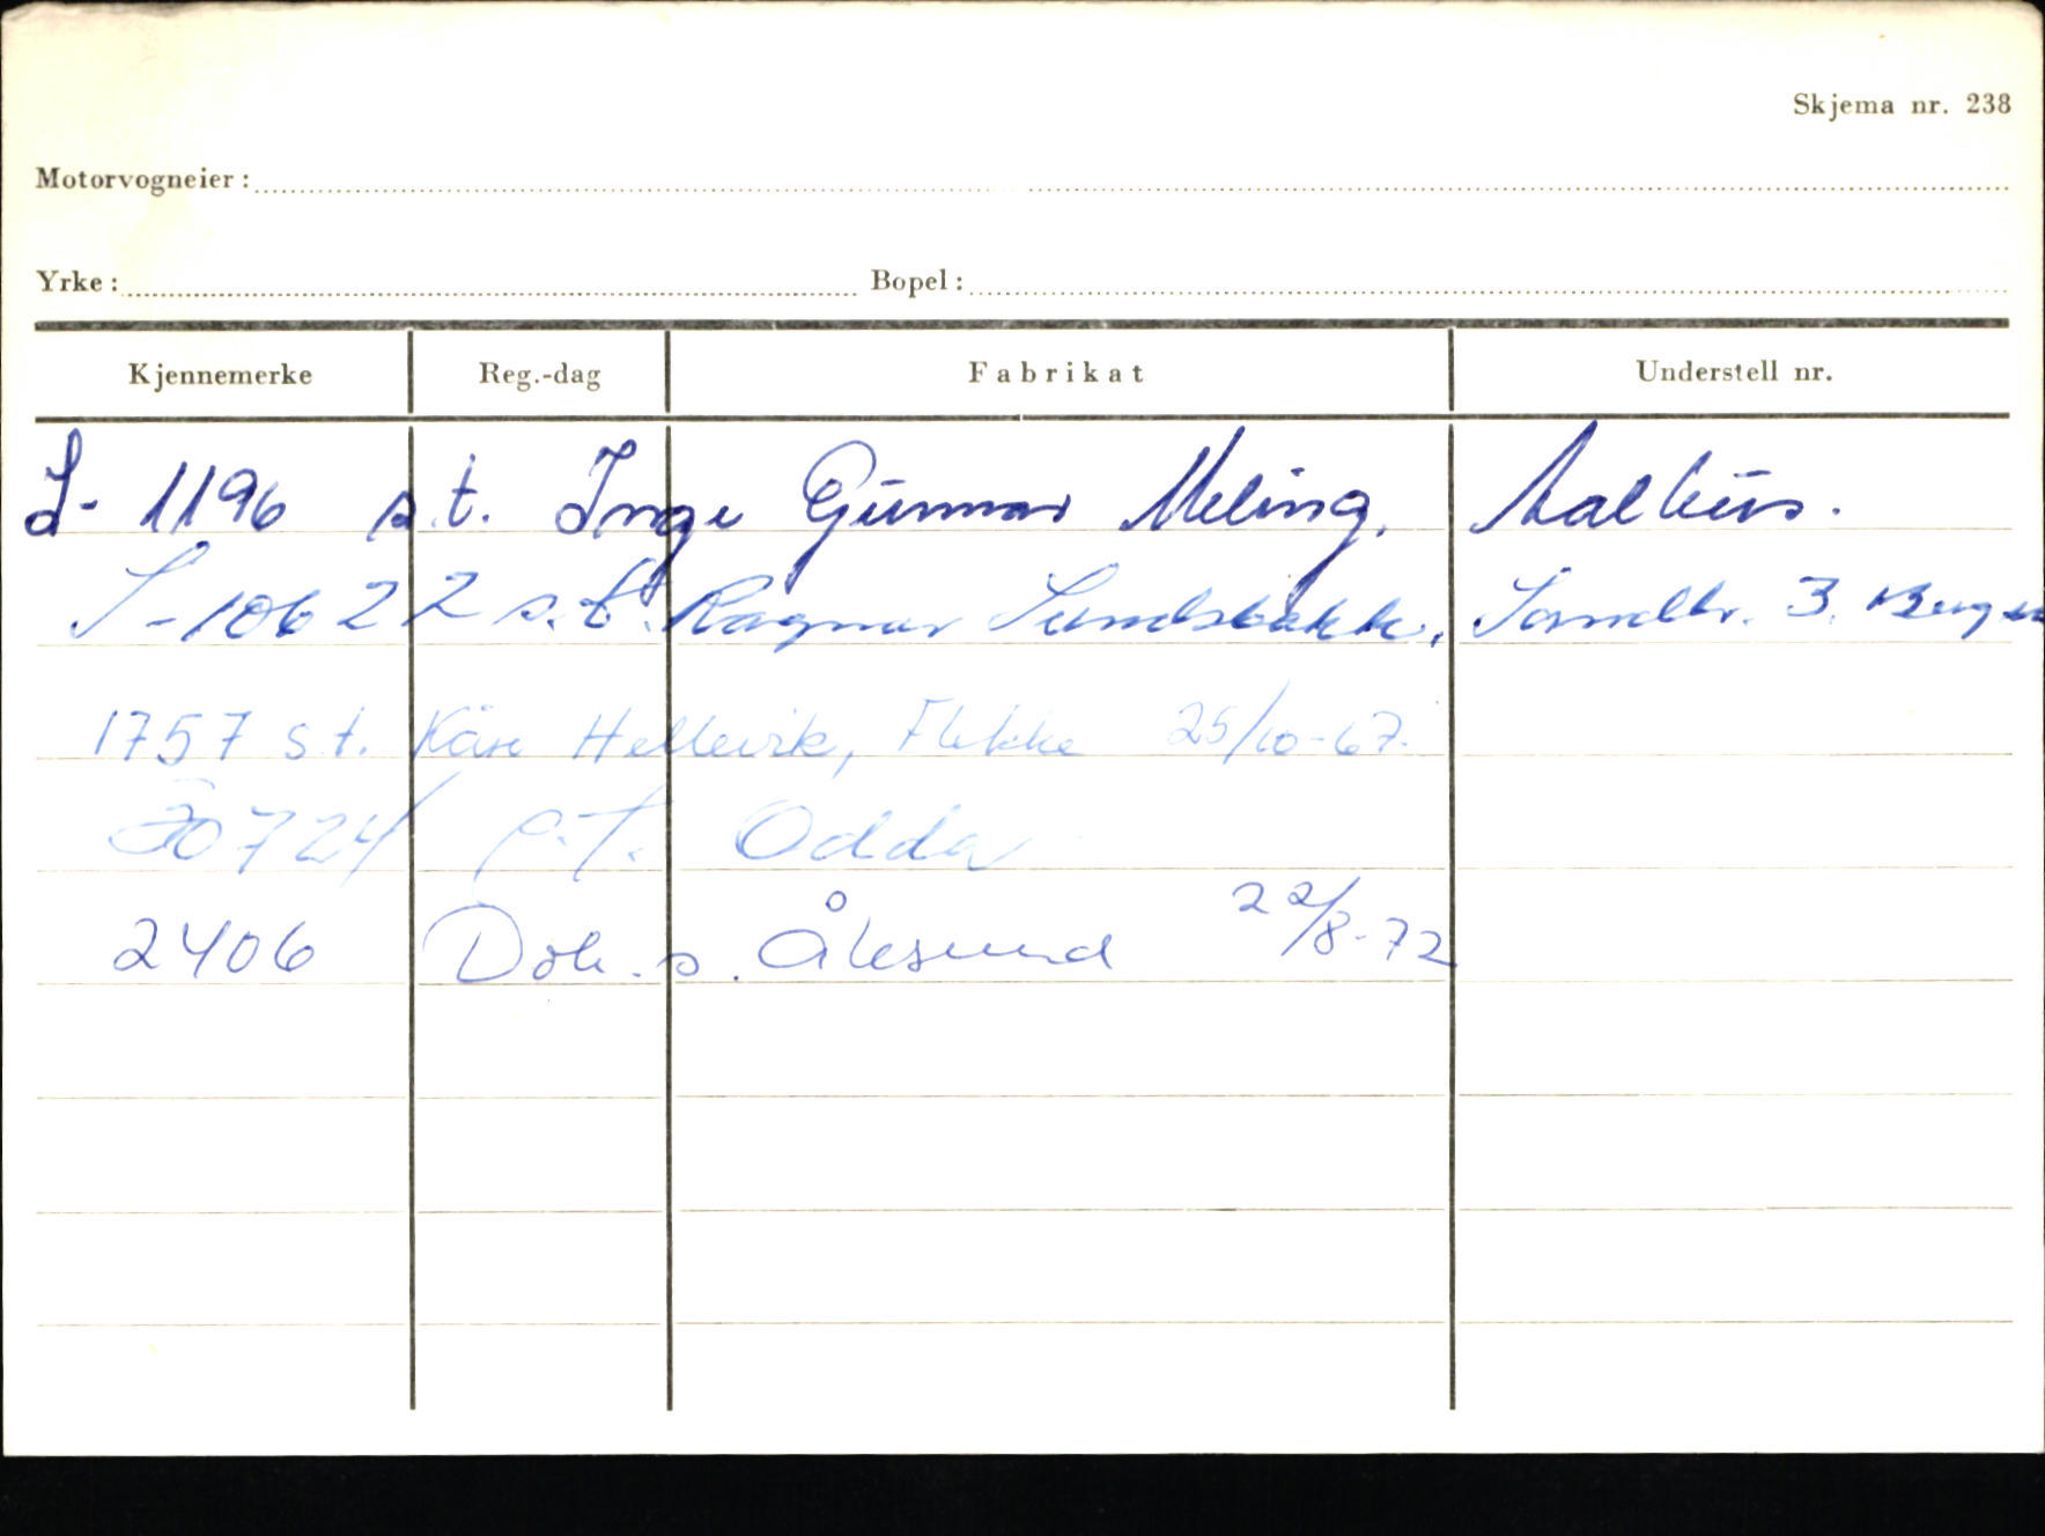 Skjema nr. 238
Motorvogneier:
Yrke: Bopel:
Kjennemerke Reg.-dag Fabrikat Understell nr.
S- 1196 s.t. Inge Gunnar Meling,
S-10622 s.t. Ragnar Sundsbakk, Sandbr. 3. Bergen
1757 s.t. Kåre Hellevik, Flekke 25/10-67.
20724 Odda
2406 Dok. s. Ålesund 22/8-72